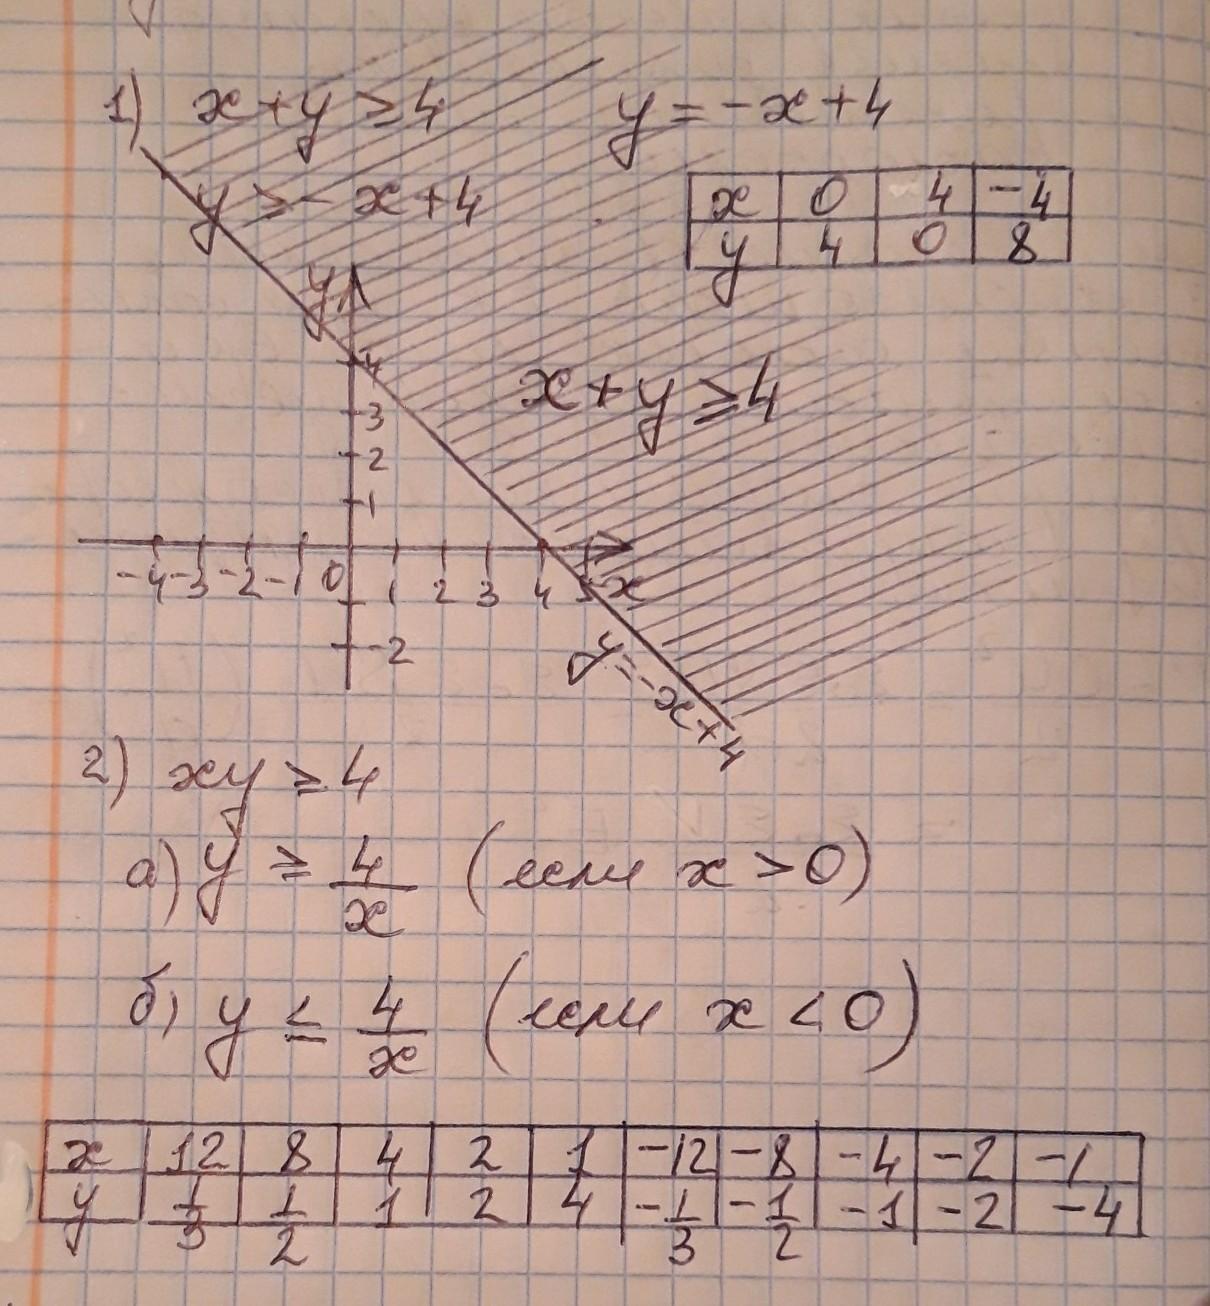 1) x + y ≥ 4 y = -x + 4
y ≥ - x + 4
x 0 4 -4
y 4 0 8
y
4
x + y ≥ 4
3
2
1
-4 -3 -2 -1 0 1 2 3 4 5 x
-2
y = -x + 4
2) xy ≥ 4
а) y ≥ 4/x (если x > 0)
б) y ≤ 4/x (если x < 0)
x 12 8 4 2 1 -12 -8 -4 -2 -1
y 1/3 1/2 1 2 4 -1/3 -1/2 -1 -2 -4